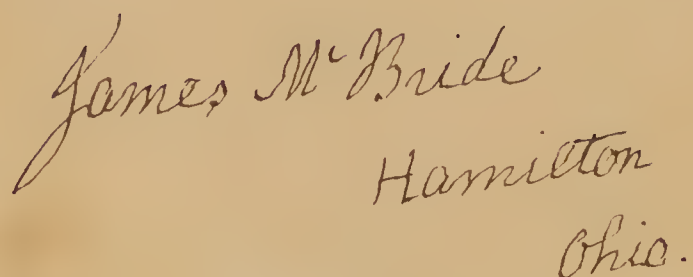 James McBride
Hamilton
Ohio.